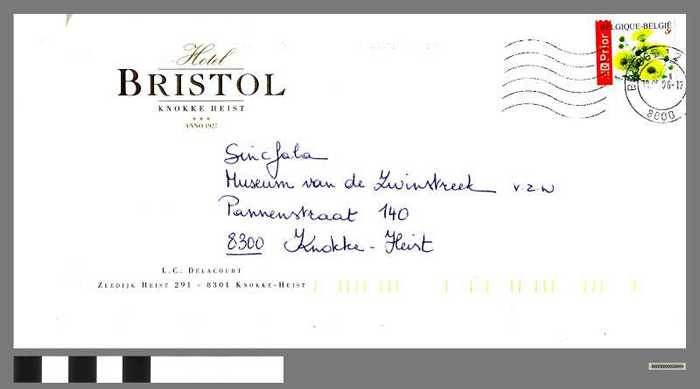 Hotel
BRISTOL
KNOKKE HEIST
ANNO 1927
BELGIQUE-BELGIË
Prior
8000
Sincfala
Museum van de Zwinstreek v.z.w
Pannenstraat 140
8300 Knokke-Heist
L.C. DELACOURT
ZEEDIJK HEIST 291 - 8301 KNOKKE-HEIST